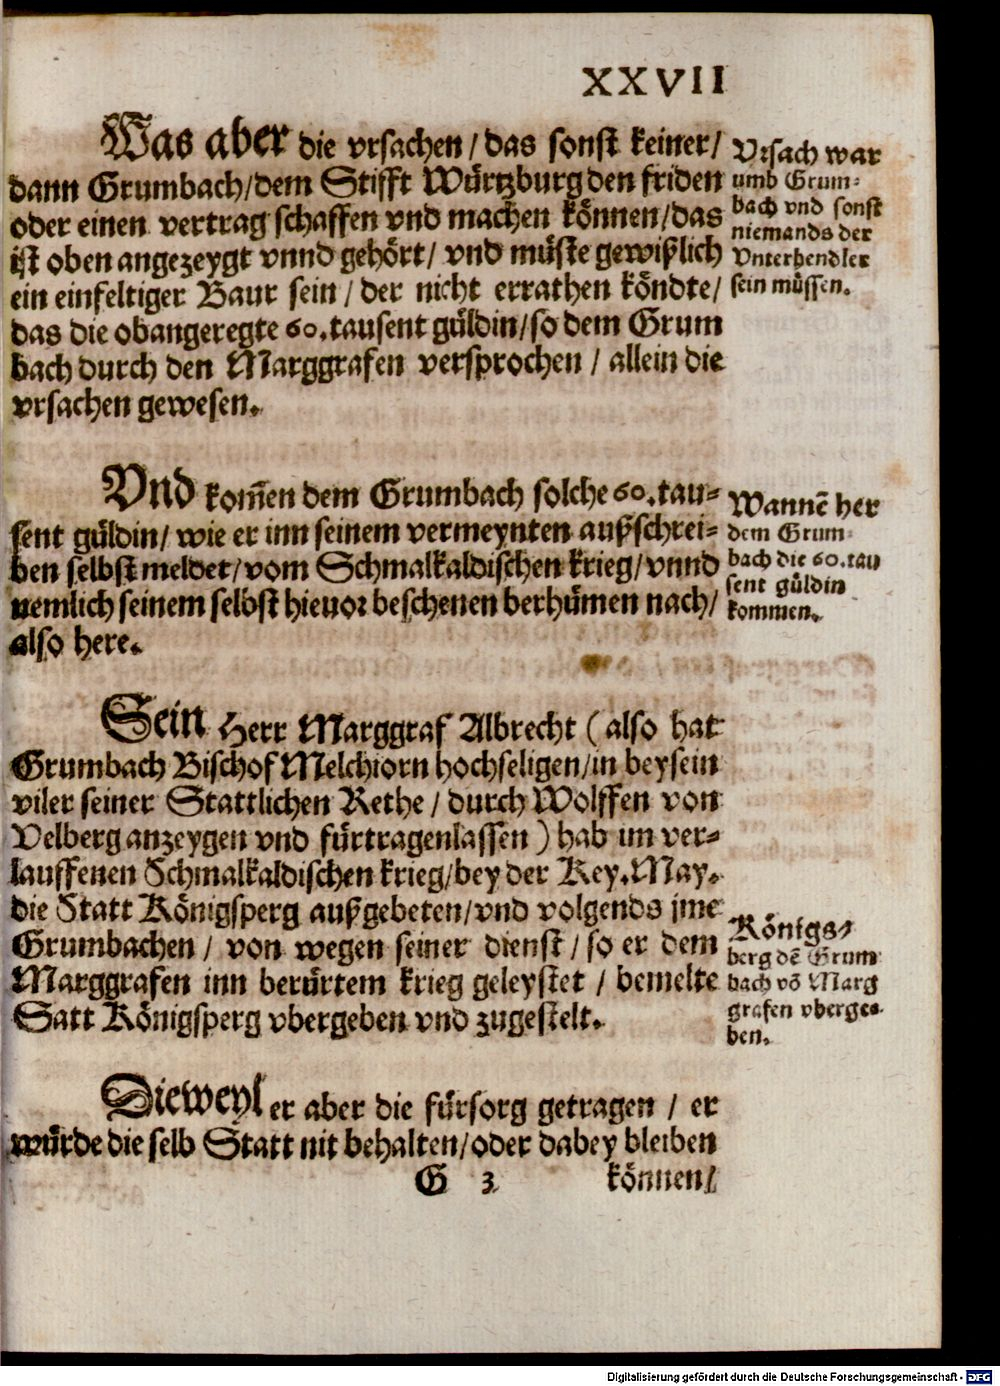 XXVII
Was aber die vrsachen / das sonst keiner /
dann Grumbach / dem Stifft Würtzburg den friden
oder einen vertrag schaffen vnd machen können / das
ist oben angezeygt vnnd gehört / vnd müste gewißlich
ein einfeltiger Baur sein / der nicht errathen köndte /
das die obangeregte 60. tausent güldin / so dem Grum
bach durch den Marggrafen versprochen / allein die
vrsachen gewesen.
Vrsach war
umb Grum-
bach vnd sonst
niemands der
Vnterhendler
sein müssen.
Vnd kom̄en dem Grumbach solche 60. tau-
sent güldin / wie er inn seinem vermeynten außschrei-
ben selbst meldet / vom Schmalkaldischen krieg / vnnd
nemlich seinem selbst hieuor beschenen berhümen nach /
also here.
Wannē her
dem Grum-
bach die 60. tau
sent güldin
kommen.
Sein Herr Marggraf Albrecht ( also hat
Grumbach Bischof Melchiorn hochseligen / in beysein
viler seiner Stattlichen Rethe / durch Wolffen von
Velberg anzeygen vnd fürtragen lassen ) hab im ver-
lauffenen Schmalkaldischen krieg / bey der Key. May.
die Statt Königsperg außgebeten / vnd volgends jme
Grumbachen / von wegen seiner dienst / so er dem
Marggrafen inn berürtem krieg geleystet / bemelte
Satt Königsperg vbergeben vnd zugestelt.
Königs-
berg dē Grum
bach vō Marg
grafen vberge-
ben.
Dieweyl er aber die fürsorg getragen / er
würde die selb Statt nit behalten / oder dabey bleiben
G 3 können /
Digitalisierung gefördert durch die Deutsche Forschungsgemeinschaft - DFG